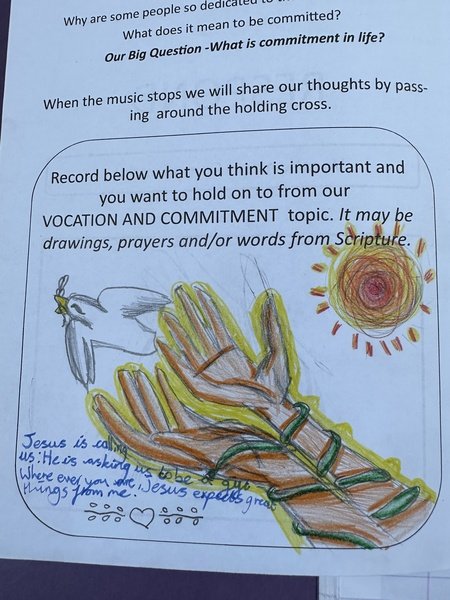 Why are some people so dedicated to
What does it mean to be committed?
Our Big Question -What is commitment in life?
When the music stops we will share our thoughts by pass-
ing around the holding cross.
Record below what you think is important and
you want to hold on to from our
VOCATION AND COMMITMENT topic. It may be
drawings, prayers and/or words from Scripture.
Jesus is calling
us: He is asking us to be a
Where ever you are, Jesus expects great
things from me.